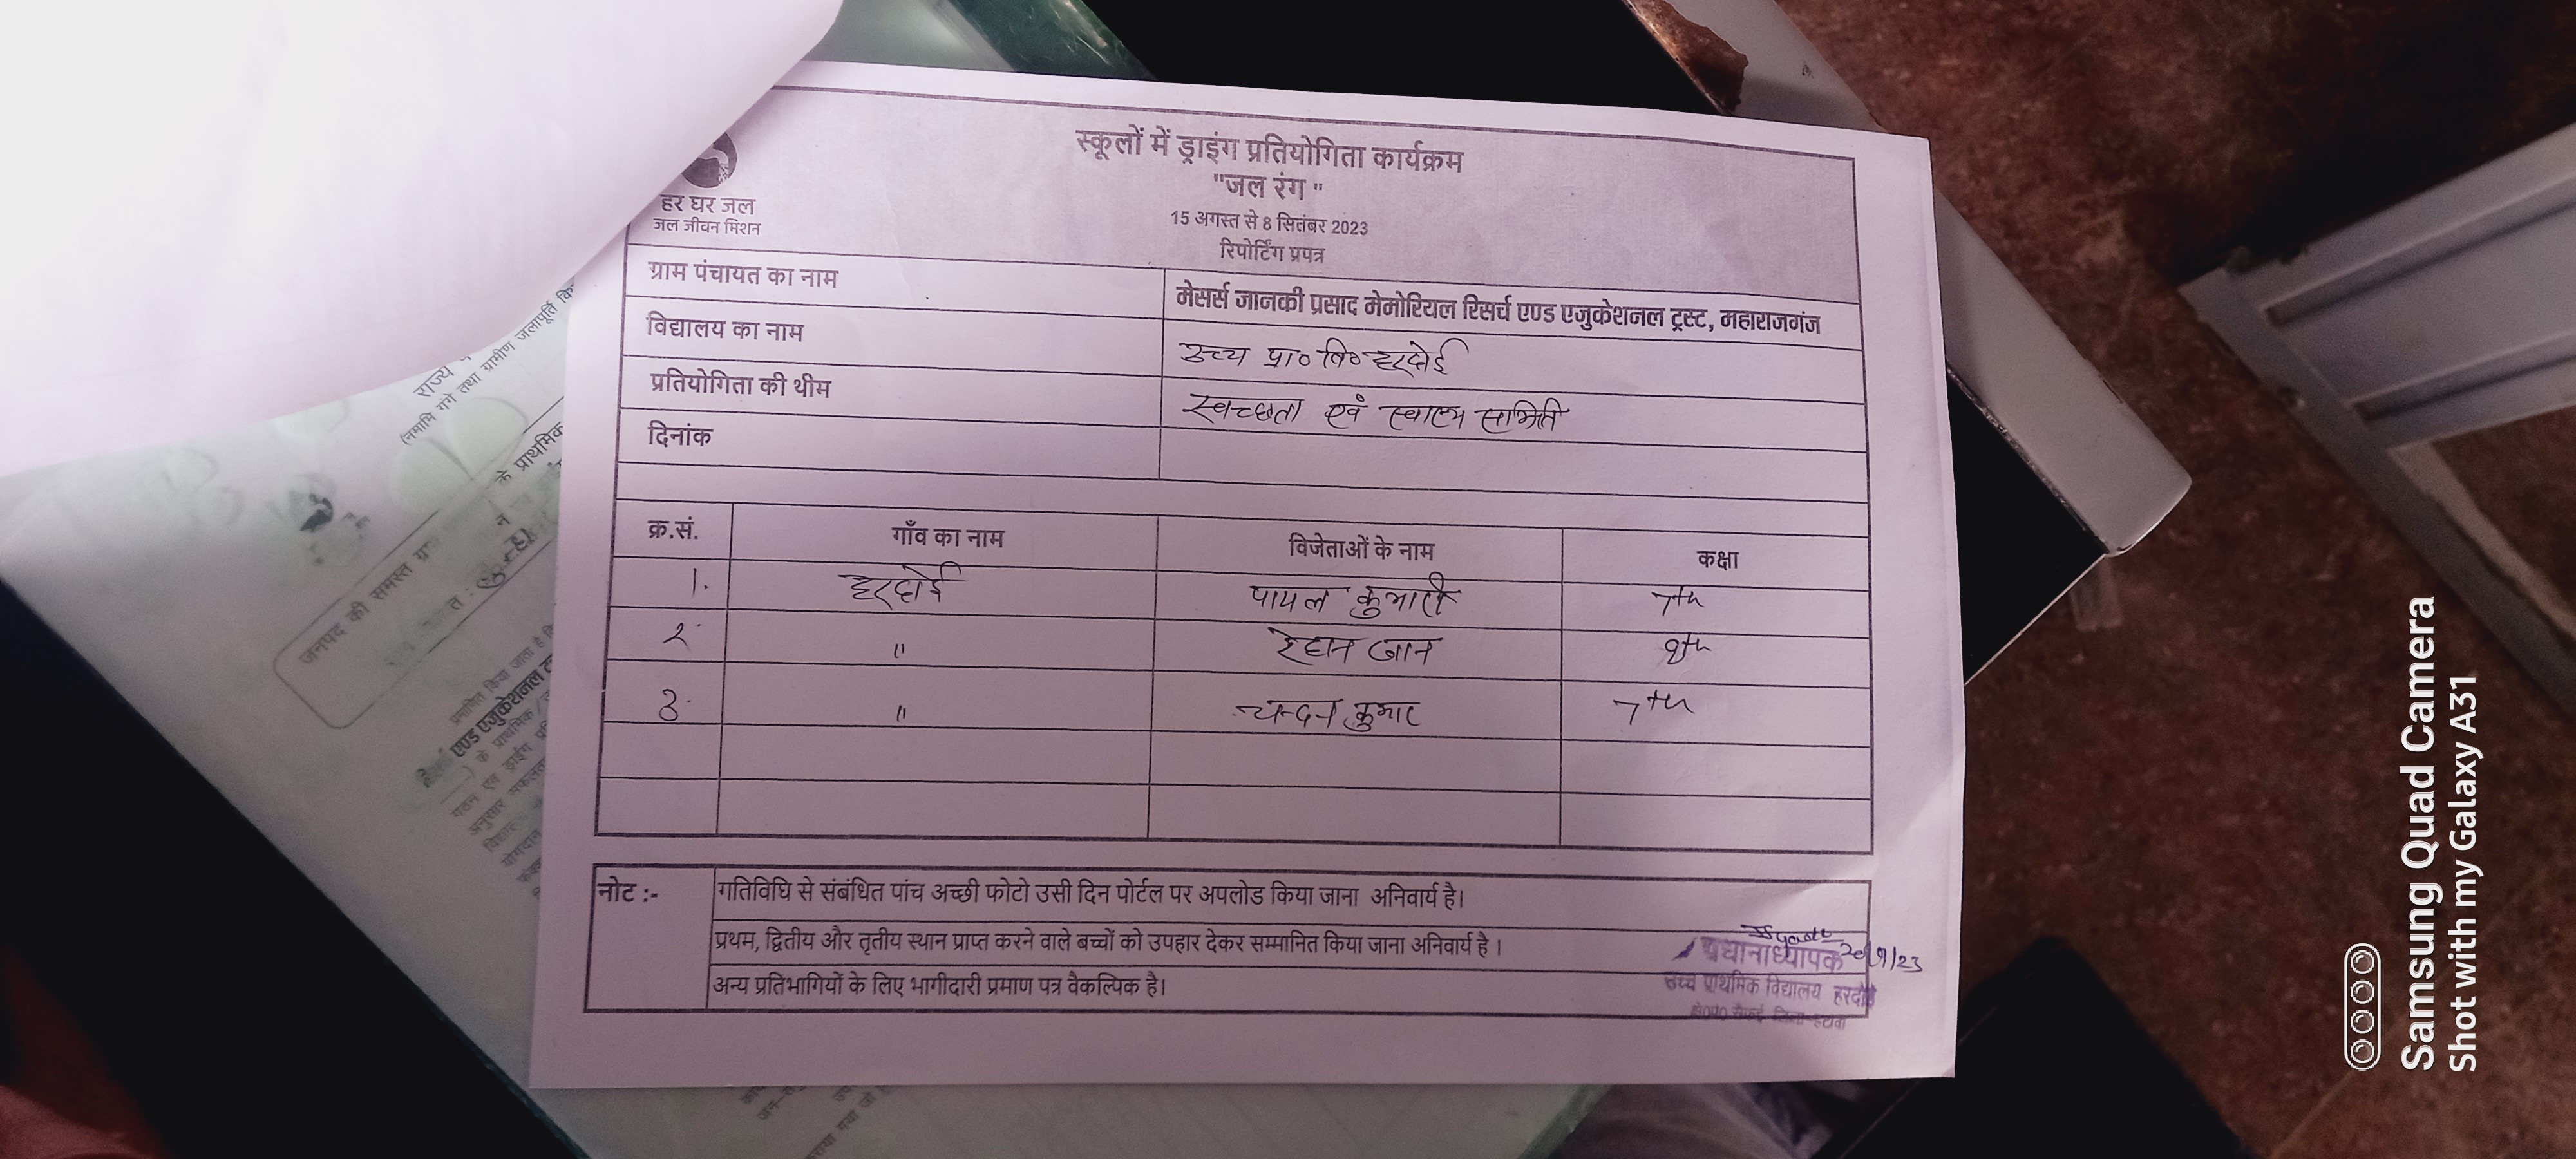 स्कूलों में ड्राइंग प्रतियोगिता कार्यक्रम
"जल रंग "
15 अगस्त से 8 सितंबर 2023
रिपोर्टिंग प्रपत्र
हर घर जल
जल जीवन मिशन
ग्राम पंचायत का नाम मेसर्स जानकी प्रसाद मेमोरियल रिसर्च एण्ड एजुकेशनल ट्रस्ट, महाराजगंज
विद्यालय का नाम उच्च प्रा० वि० हरदोई
प्रतियोगिता की थीम स्वच्छता एवं स्वास्थ्य समिति
दिनांक
क्र.सं. गाँव का नाम विजेताओं के नाम कक्षा
1. हरदोई पायल कुमारी 7th
2. " रेहान जान 8th
3. " चन्दन कुमार 7th
नोट :- गतिविधि से संबंधित पांच अच्छी फोटो उसी दिन पोर्टल पर अपलोड किया जाना अनिवार्य है।
प्रथम, द्वितीय और तृतीय स्थान प्राप्त करने वाले बच्चों को उपहार देकर सम्मानित किया जाना अनिवार्य है ।
अन्य प्रतिभागियों के लिए भागीदारी प्रमाण पत्र वैकल्पिक है।
प्रधानाध्यापक
उच्च प्राथमिक विद्यालय हरदोई
राज्य
(नमामि गंगे तथा ग्रामीण जलापूर्ति
के प्राथमिक
जनपद की समस्त
प्रमाणित किया जाता है
एण्ड एजुकेशनल
Samsung Quad Camera
Shot with my Galaxy A31